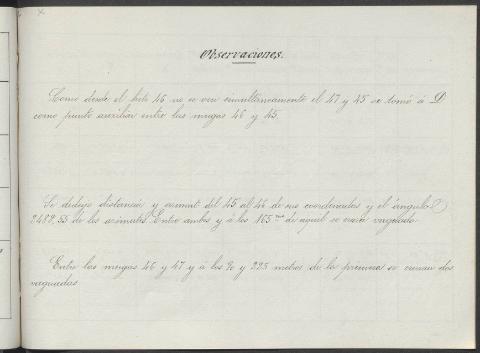 Observaciones.
Como desde el hito 46 no se ven simultaneamente el 47 y 45 se tomó á D
como punto auxiliar entre las mugas 46 y 45.
Se dedujo distancia y azimut del 45 al 46 de sus coordenadas y el angulo D
2488,55 de los azimutes. Entre ambas y á los 165 de aquel se cruza vaguada
Entre las mugas 46 y 47 y á los 90 y 225 metros de la primera se cruzan dos
vaguadas